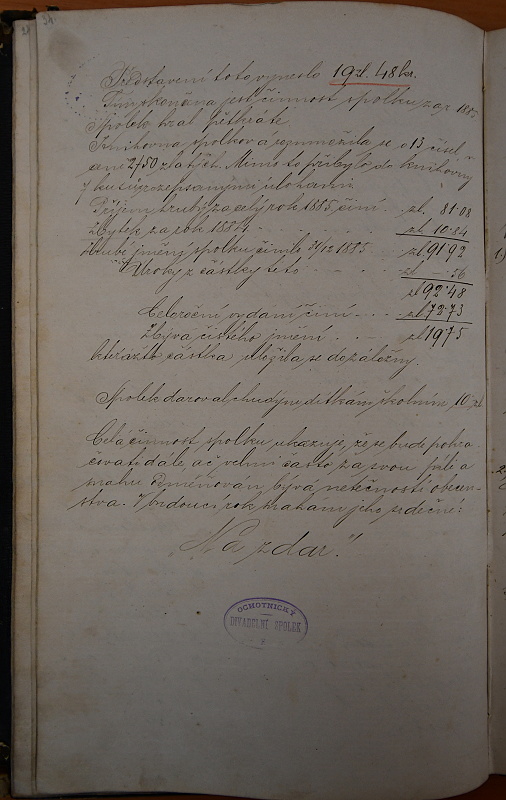 24
Představení toto vyneslo 19 zl. 48 kr.
Tím skončena jest činnost spolku za r. 1885
Spolek hrál pětkráte
Knihovna spolková rozmnožila se o 13 čísel
ani 2/50 zlatých. Mimo to přibyl do knihovny
7 ku s úlohami
Příjem hrubý za celý rok 1885 činí . zl. 81·08
Zbytek za rok 1884 . . . zl. 10·84
Hrubé jmění spolku činilo 31/12 1885 . . zl. 91·92
Úroky z částky této . . . . zl. — ·56
zl 92·48
Celoroční vydání činí . . . zl 72·73
Zbývá čistého jmění . . — zl 19 75
kterážto částka uložila se do záložny.
Spolek daroval chudým dítkám školním 10 zl.
Celá činnost spolku ukazuje, že se bude pokra-
čovati dále, ač velmi často za svou píli a
snahu odměňován bývá netečností obecen-
stva. V budoucí rok voláme jeho srdečné:
„Na zdar".
OCHOTNICKÝ
DIVADELNÍ SPOLEK